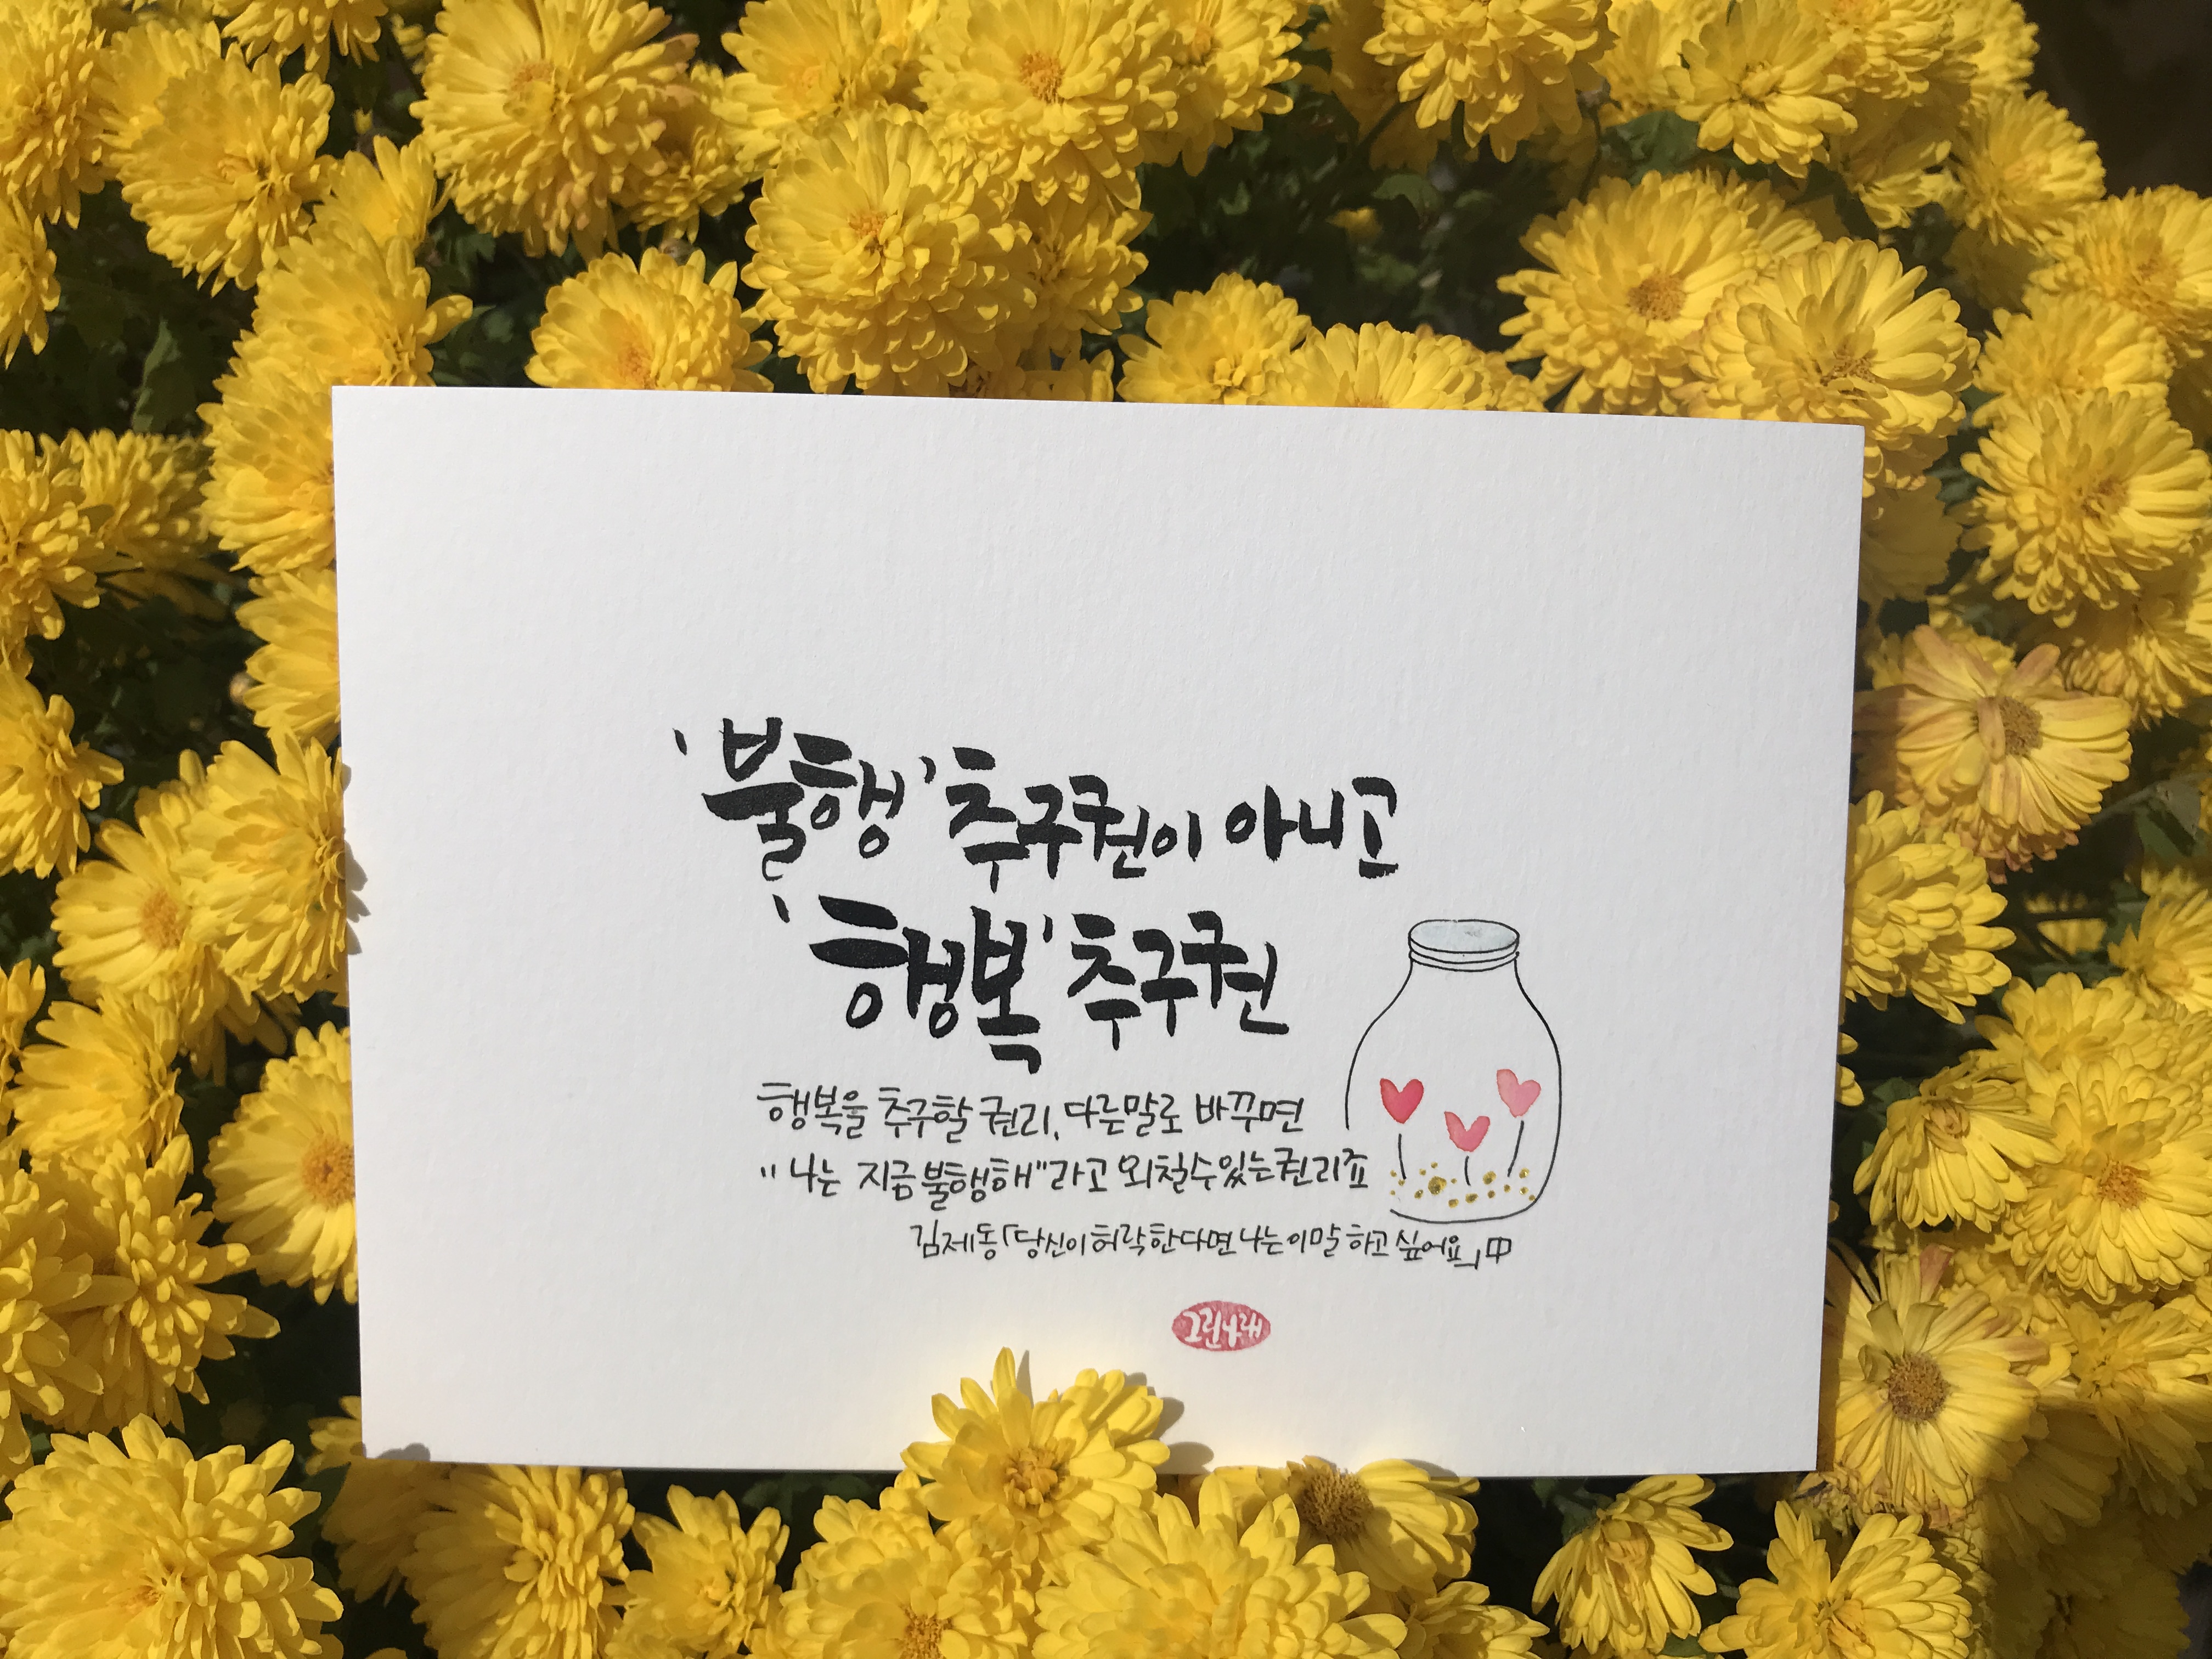 '불행' 추구권이 아니고
'행복' 추구권
행복을 추구할 권리, 다른말로 바꾸면
"나는 지금 불행해"라고 외칠수있는권리죠
김제동「당신이허락한다면 나는이말 하고 싶어요」中
그린나래